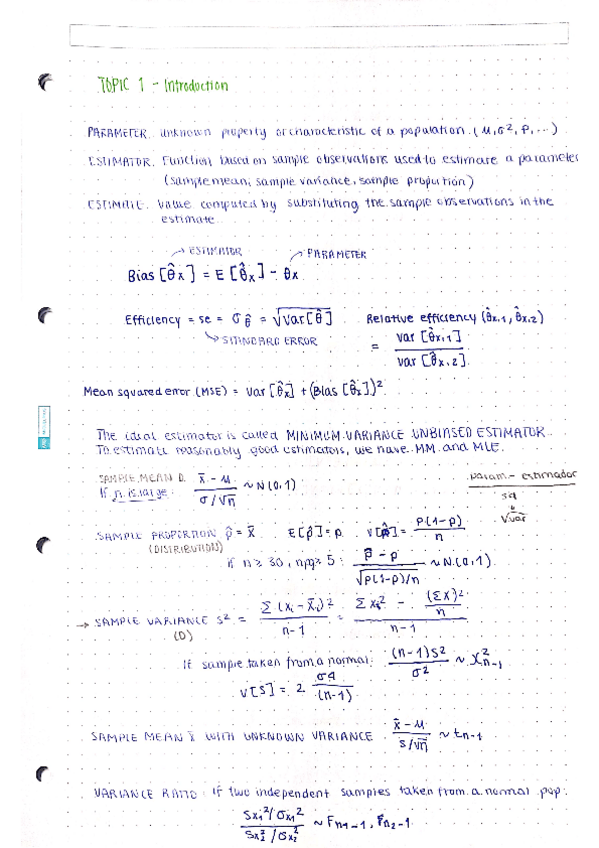 TOPIC 1 - Introduction
PARAMETER. Unknown property or characteristic of a population. (μ, σ², P, ...)
ESTIMATOR. Function based on sample observations used to estimate a parameter
(sample mean, sample variance, sample proportion)
ESTIMATE. Value computed by substituting the sample observations in the
estimate.
→ ESTIMATOR → PARAMETER
Bias [θ̂x] = E [θ̂x] - θx
Efficiency = se = σ θ̂ = √Var[θ̂] Relative efficiency (θ̂x,1, θ̂x,2)
→ STANDARD ERROR = var [θ̂x,1] / var [θ̂x,2]
Mean squared error (MSE) = Var [θ̂x] + (Bias [θ̂x])²
The ideal estimator is called MINIMUM VARIANCE UNBIASED ESTIMATOR
To estimate reasonably good estimators, we have MM and MLE.
SAMPLE MEAN D. x̄ - μ / σ/√n ~ N(0,1) param - estimador
If n is large: sd
√var
SAMPLE PROPORTION p̂ = x̄ E[p̂] = p V[p̂] = p(1-p) / n
(DISTRIBUTION)
if n ≥ 30, npq ≥ 5: p̂ - p / √p(1-p)/n ~ N(0,1)
→ SAMPLE VARIANCE s² = Σ (xi - x̄)² / n-1 = Σ xi² - (Σx)²/n / n-1
(D)
If sample taken from a normal: (n-1)s² / σ² ~ χ²n-1
V[S] = 2 σ4 / (n-1)
SAMPLE MEAN x̄ WITH UNKNOWN VARIANCE x̄ - μ / s/√n ~ tn-1
VARIANCE RATIO. If two independent samples taken from a normal pop:
Sx1²/σx1² / Sx2²/σx2² ~ Fn1-1, Fn2-1